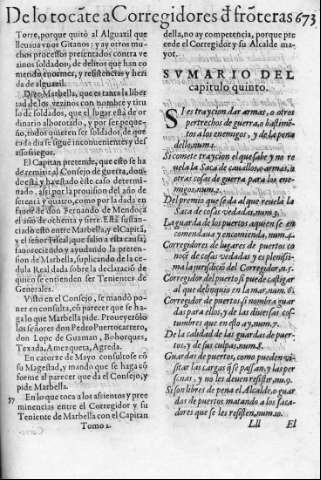 De lo tocãte a Corregidores đ frõteras 673
Torre, porque quitò al Alguazil que
lleuaua vnos Gitanos: y ay otros muchos
procesos presentados contra vezinos
soldados, de delitos que han cometido
enormes, y resistencias y herida
de alguazil.
Dize Marbella, que es tanta la libertad
de los vezinos con nombre y titulo
de soldados, que el lugar està de ordinario
alborotado, y por ser pequeño,
todos quieren ser soldados, de que
cada dia se siguē inconuenientes y desassosiegos.
El Capitan pretende, que esto se ha
de remitir al Consejo de guerra, donde
esta y ha estado este caso determinado,
assi por la prouision del año de
setenta y ocho, como por la dada en
fauor de don Fernando de Mendoça
el año de ochenta y tres. Està sustanciado
esto entre Marbella, y el Capitã,
y el señor Fiscal, que salio a esta causa,
fauoreciendo y ayudando la pretension
de Marbella, suplicando de la cedula
Real dada sobre la declaraciõ de
quien se entienden ser Tenientes de
Generales.
Visto en el Consejo, se mandò poner
en consulta, cõ parecer que se haga
lo que Marbella pide. Proueyerõlo
los señores don Pedro Puertocarrero,
don Lope de Guzman, Bohorques,
Texada, Amezqueta, Agreda.
En catorze de Mayo consultose cõ
su Magestad, y mandò que se haga cõforme
al parecer que da el Consejo, y
pide Marbella.
37 En lo que toca a los assientos y preeminencias
entre el Corregidor y su
Teniente de Marbella con el Capitan
Tomo 2.
della, no ay competencia, porque precede
el Corregidor y su Alcalde mayor.
SVMARIO DEL
capitulo quinto.
SI es traycion dar armas, o otros
pertrechos de guerra, o bastimētos
a los enemigos, y de la pena
dello, num. 1.
Si comete traycion el que sabe y no reuela
la Saca de cauallos, armas, u
otras cosas de guerra para los enemigos, num. 2.
Del premio que se da al que reuela la
Saca de cosas vedadas, num. 3.
La guarda de los puertos a quien se encomienda
y encomendaua, num. 4.
Corregidores de lugares de puertos conocē
de cosas vedadas y es plenissima
la jurisdiciõ del Corregidor, n. 5.
Corregidor del puerto si puede castigar
al que delinquio en la mar, num. 6.
Corregidor de puerto si nombra guardas
para ellos, y de las diuersas costumbres
que en esto ay, num. 7.
De la calidad de las guardas de puertos,
y de sus culpas, num. 8.
Guardas de puertos, como pueden visitar
las cargas q̃ se passan, y las personas,
y no les deuen resistir, nu. 9.
Si son libres de pena el Alcalde, o guardas
de puertos matando a los sacadores
que se les resisten, num. 10.
Lll El